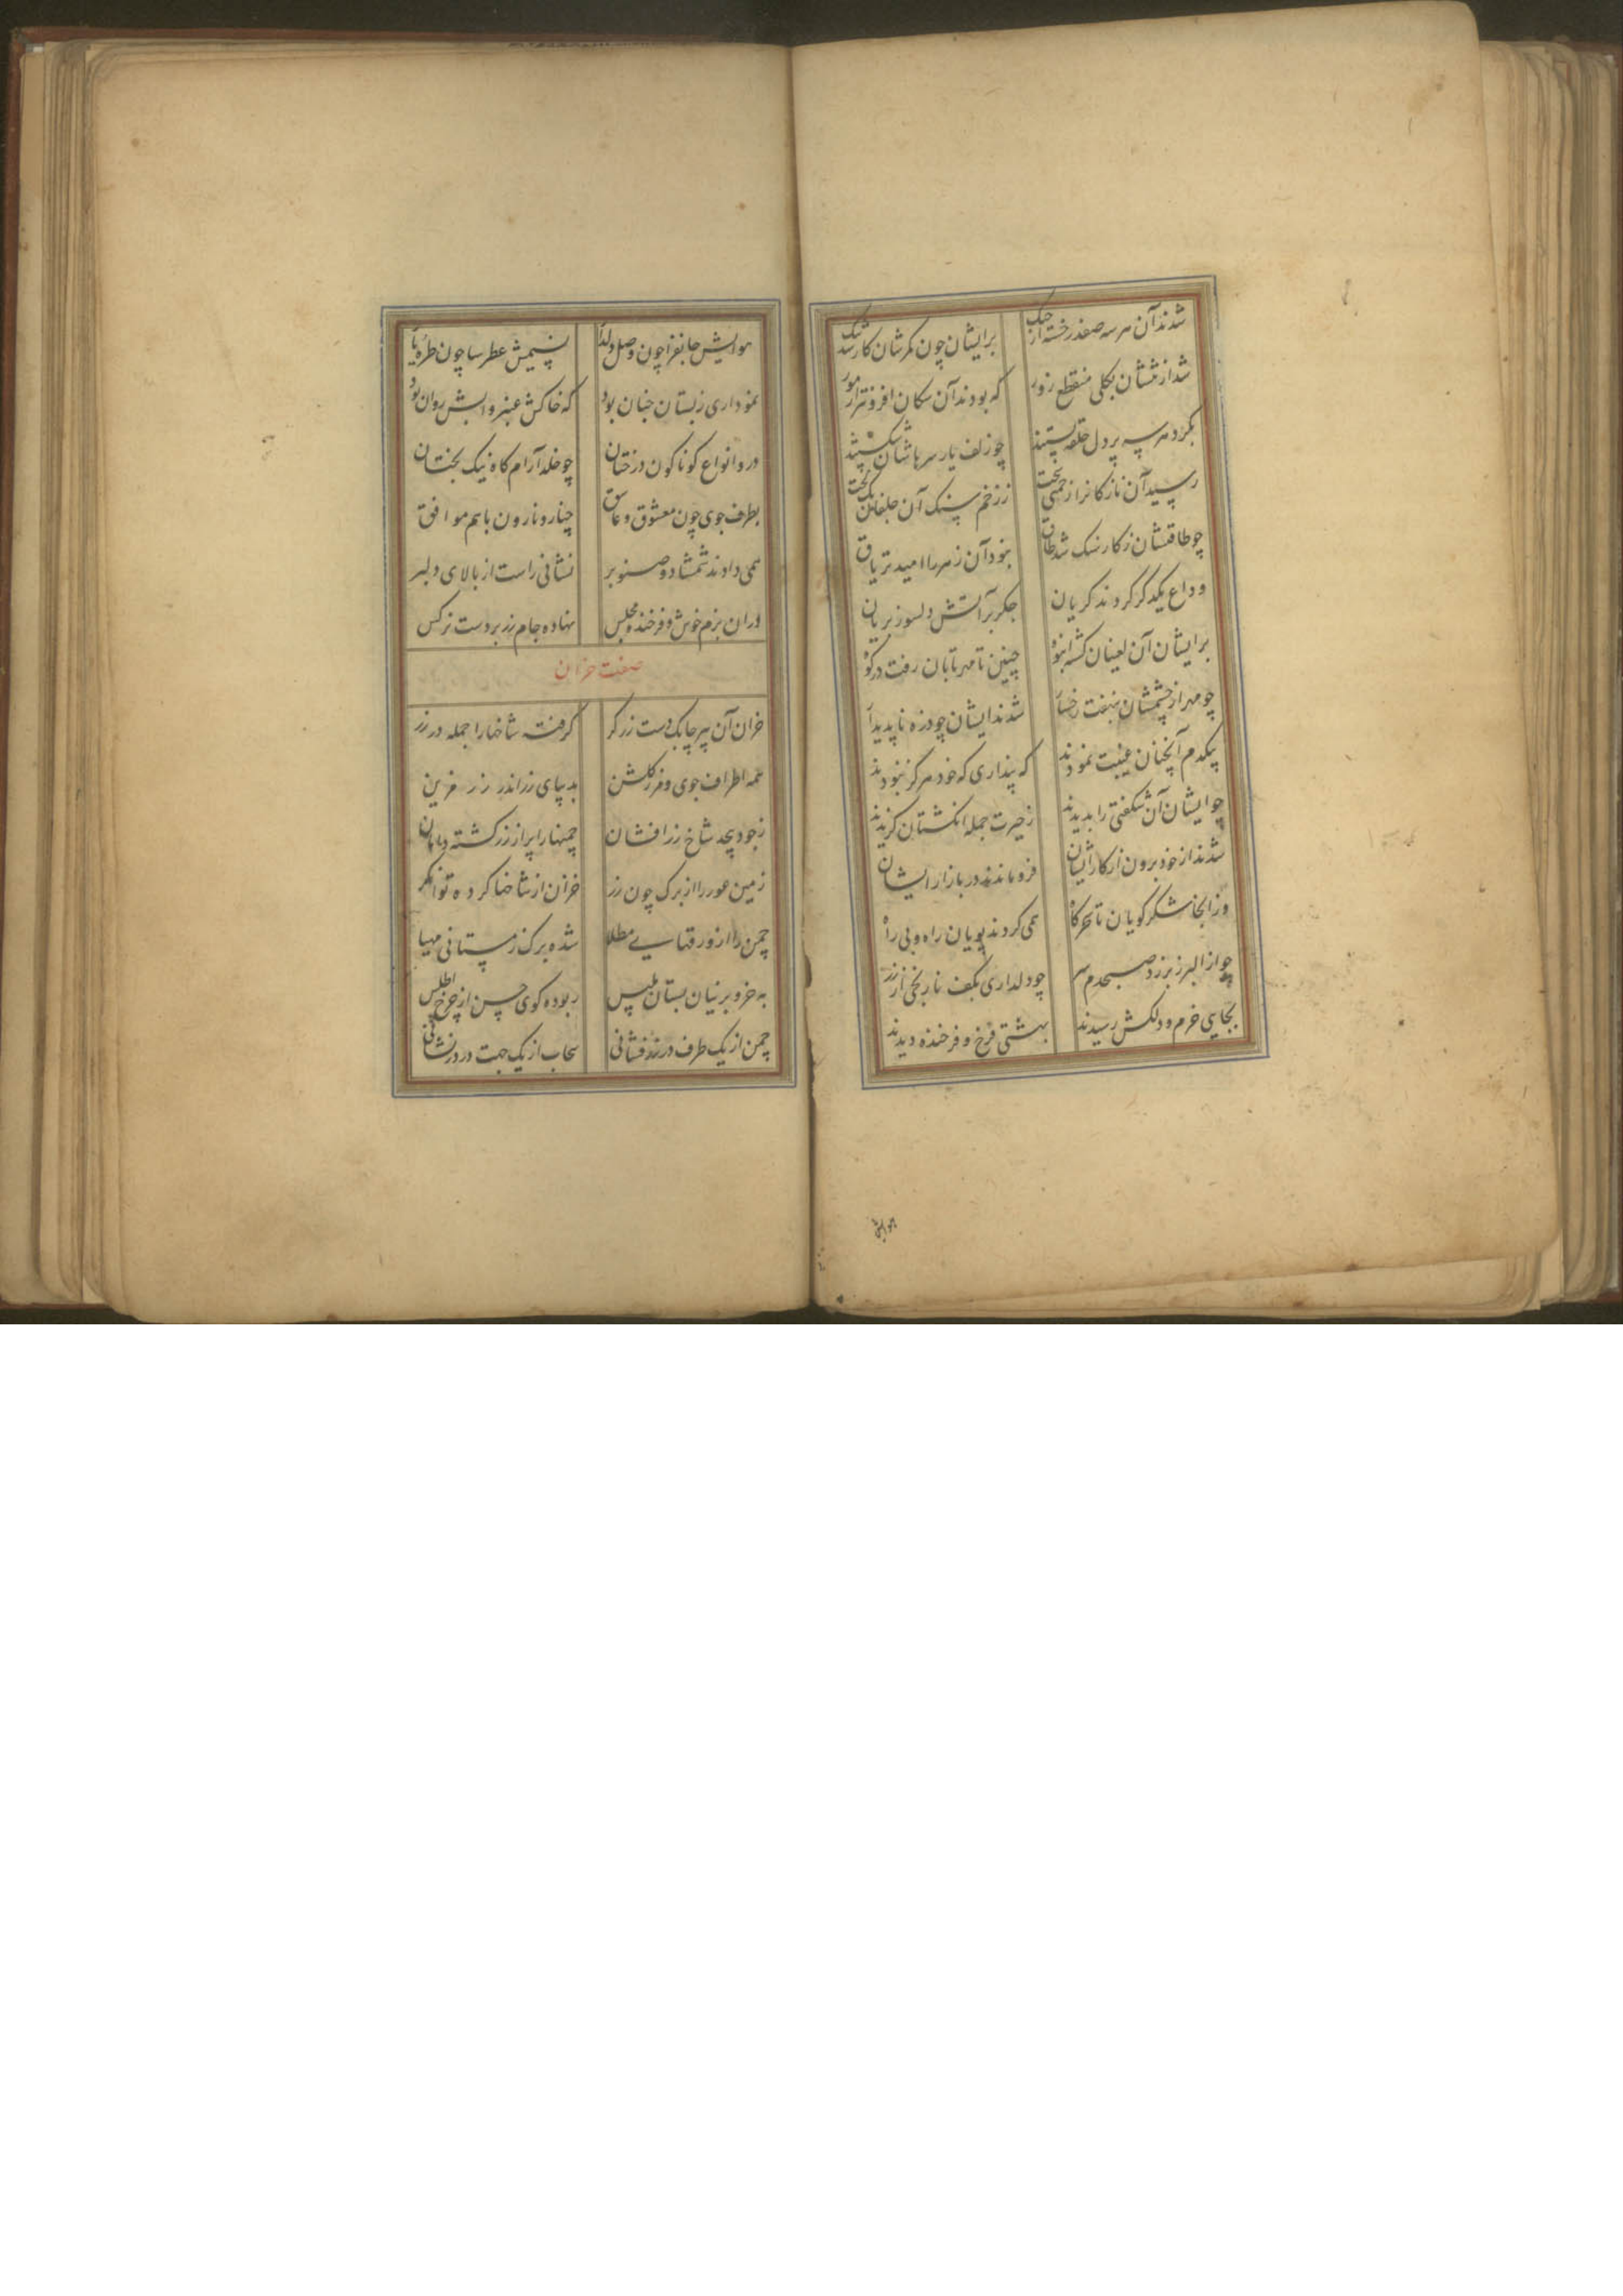 شدند آن هر سه صفدر خسته از جنک برایشان چون کمرشان کار شد تنک
شد از تنشان بکلی منقطع زور که بودند آن سکان افزونتر از مور
بکرد هر سه پر دل حلقه بستند چو زلف یار سرهاشان شکستند
رسید آن نازکانرا زحمتی سخت ز زخم سنک آن جلفان یک لخت
چو طاقتشان ز کار سنک شد طاق نبود آن زهر را امید تریاق
وداع یکدکر کردند کریان جکر بر آتش دلسوز بریان
برایشان آن لعینان کشته انبوه چنین تا مهر تابان رفت در کوه
چو مهر از چشمشان بنهفت رخسار شدند ایشان چو ذره ناپدیدار
بیکدم آنچنان غیبت نمودند که پنداری که خود هرکز نبودند
چو ایشان آن شکفتی را بدیدند ز حیرت جمله انکشتان کزیدند
شدند از خود برون از کار ایشان فرو ماندند در بازار ایشان
وز آنجا شکر کویان تا سحرکاه همی کردند پویان راه و بی راه
چو از البرز بر زد صبحدم سر چو دلداری بکف نارنجی از زر
بجایی خرم و دلکش رسیدند بهشتی فرخ و فرخنده دیدند
هوایش
هوایش جانفزا چون وصل دلدار نسیمش عطرسا چون طره یار
نموداری ز بستان جنان بود که خاکش عنبر و آبش روان بود
در و انواع کوناکون درختان چو خلد آرام کاه نیک بختان
بطرف جوی چون معشوق و عاشق چنار و نارون با هم موافق
همی دادند شمشاد و صنوبر نشانی راست از بالای دلبر
در ان بزم خوش و فرخنده مجلس نهاده جام زر بر دست نرکس
صفت خزان
خزان آن پیر چابک دست زرکر کرفته شاخها را جمله در زر
همه اطراف جوی و فرز کلشن بدیبای زر اندر زر مزین
ز جود بیحد شاخ زر افشان چمنها را پر از زر کشته دامان
زمین عور را از برک چون زر خزان از شاخها کرده توانکر
چمن را از ورقهایی مطلا شده برک زمستانی مهیا
به خز و پرنیان بستان ملبس ربوده کوی حسن از چرخ اطلس
چمن از یک طرف در زر فشانی سحاب از یک جهت در در نشانی